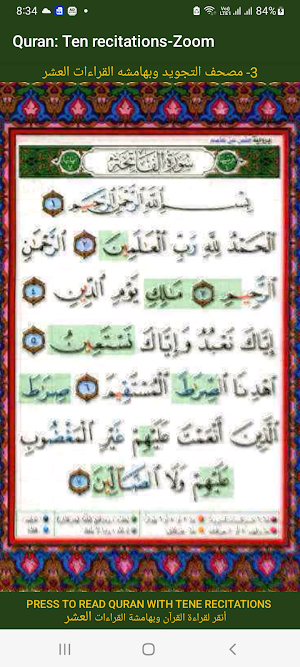 8:34
84%
Quran: Ten recitations-Zoom
3- مصحف التجويد وبهامشه القراءات العشر
سورة الفاتحة
بسم الله الرحمن الرحيم ١
الحمد لله رب العلمين ٢ الرحمن
الرحيم ٣ ملك يوم الدين ٤
إياك نعبد وإياك نستعين ٥
اهدنا الصرط المستقيم ٦ صرط
الذين أنعمت عليهم غير المغضوب
عليهم ولا الضالين ٧
PRESS TO READ QURAN WITH TENE RECITATIONS
أنقر لقراءة القرآن وبهامشة القراءات العشر